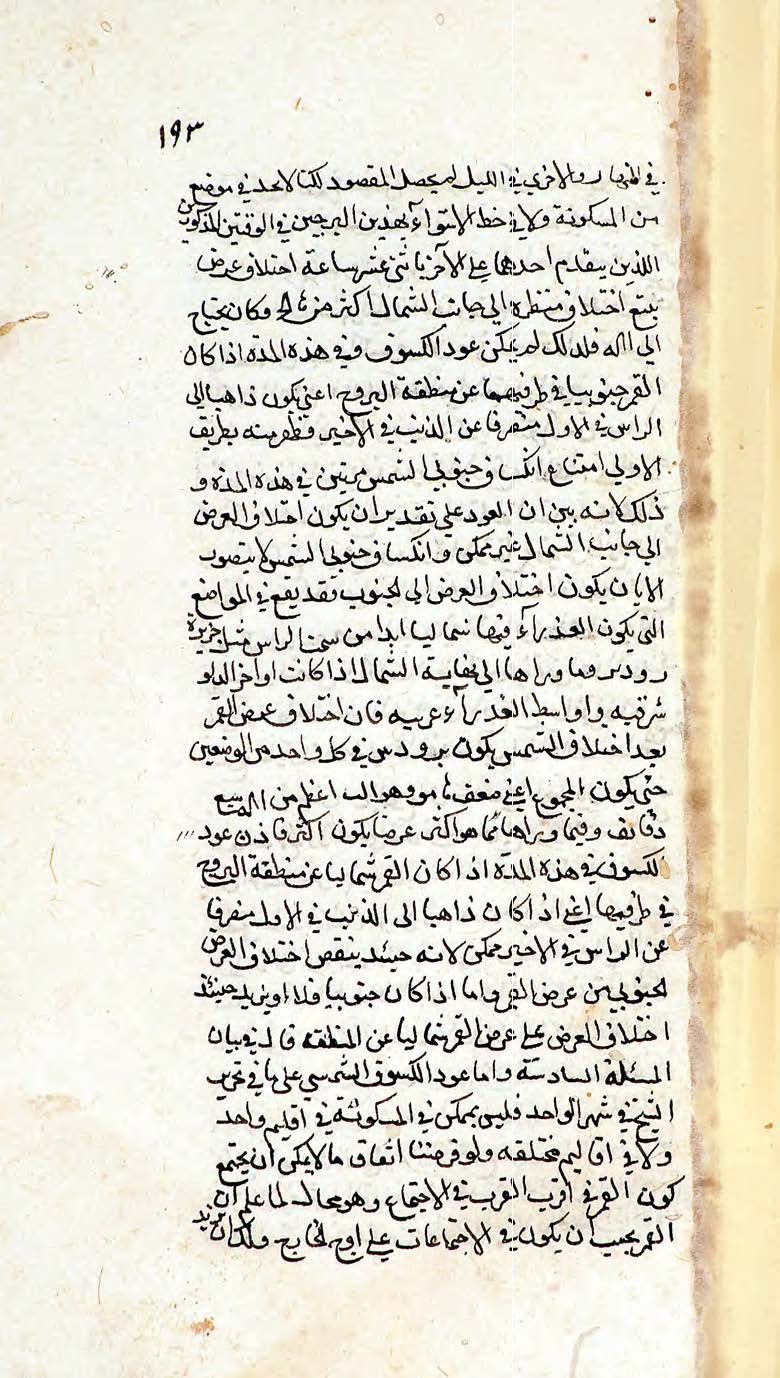 ١٩٣
في النهار والاخرى في الليل لم يحصل المقصود لكنا لا نجد في موضع
من المسكونة ولا في خط الاستواء بهذين البرجين في الوقتين المذكورين
اللذين يتقدم احدهما على الآخر باثني عشر ساعة اختلاف عرض
يتبع اختلاف منظره الى جانب الشمال اكثر من وكان يحتاج
الى فلذلك لم يمكن عود الكسوف في هذه المدة اذا كان
القمر جنوبيا في طرفيهما عن منطقة البروج اعني يكون ذاهبا الى
الراس في الاول منصرفا عن الذنب في الاخير فظهر منه بطريق
الاولى امتناع انكساف جنوبي الشمس مرتين في هذه المدة و
ذلك لانه بين ان العود على تقدير ان يكون اختلاف العرض
الى جانب الشمال غير ممكن وانكساف جنوبي الشمس لا يتصور
الا بان يكون اختلاف العرض الى الجنوب فقد يقع في المواضع
التي يكون العذراء فيها شماليا ابدا من سمت الراس مثل جزيرة
رودس وما وراها الى نهاية الشمال اذا كانت اواخر الدلو
شرقيه واواسط العذراء غربيه فان اختلاف عرض القمر
بعد اختلاف الشمس يكون برودس في كل واحد من الوضعين
حتى يكون المجموع اعني ضعف وهو اعظم من التسع
دقائق وفيما وراها مما هو اكثر عرضا يكون اكثر فاذن عود
الكسوف في هذه المدة اذا كان القمر شماليا عن منطقة البروج
في طرفيها اعني اذا كان ذاهبا الى الذنب في الاول منصرفا
عن الراس في الاخير ممكن لانه حينئذ ينقص اختلاف العرض
الجنوبي من عرض القمر واما اذا كان جنوبيا فلا اذ يزيد حينئذ
اختلاف العرض على عرض القمر شماليا عن المنطقه قال في بيان
المسئلة السادسة واما عود الكسوف الشمسي على ما في تحرير
الشيخ في شهر الواحد فليس يمكن في المسكونة في اقليم واحد
ولا في اقاليم مختلفه ولو فرضنا اتفاق ما لا يمكن ان يجتمع
كون القمر في اقرب القرب في الاجتماع وهو محال لما علم ان
القمر يجب ان يكون في الاجتماعات على اوج الخارج ولكان يزيد